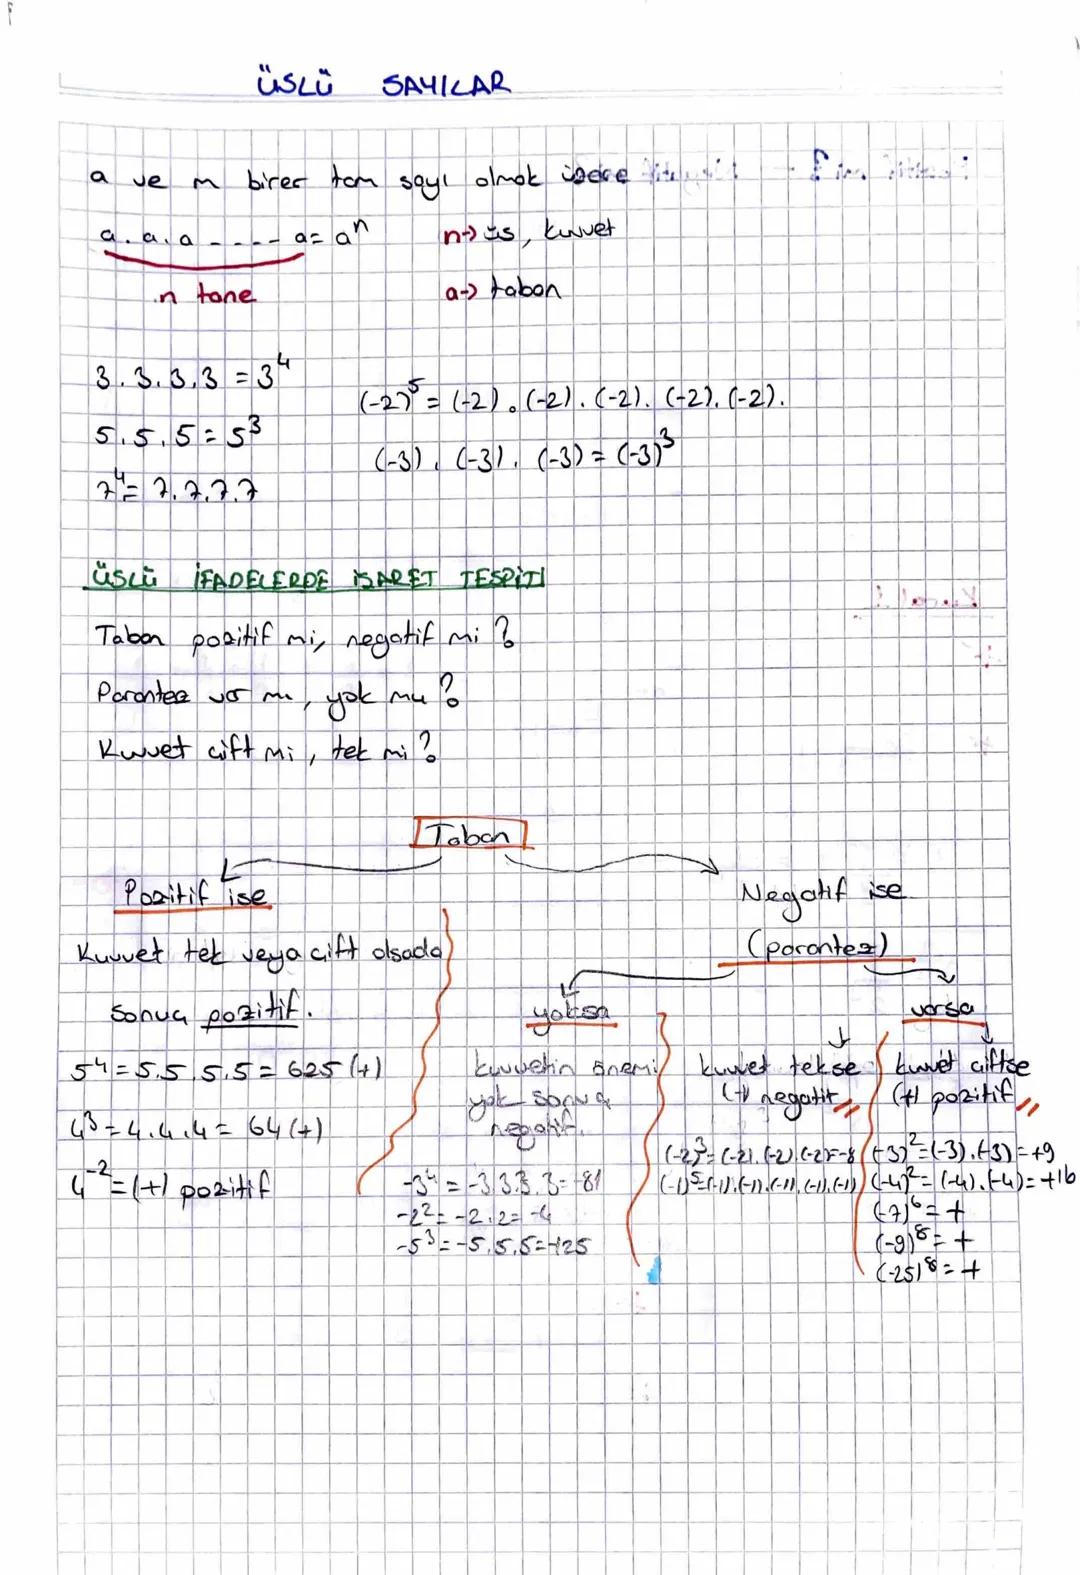 ÜSLÜ SAYILAR
a ve m birer tam sayı olmak üzere
a.a.a----a=aⁿ n→ üs, kuvvet
n tane a→ taban
3.3.3.3=3⁴
(-2)⁵=(-2).(-2).(-2).(-2).(-2).
5.5.5=5³
(-3).(-3).(-3)=(-3)³
7⁴=7.7.7.7
ÜSLÜ İFADELERDE İŞARET TESPİTİ
Taban pozitif mi, negatif mi?
Parantez var mı, yok mu?
Kuvvet çift mi, tek mi?
Taban
Pozitif ise
Kuvvet tek veya çift olsada
sonuç pozitif.
5⁴=5.5.5.5=625(+)
4³=4.4.4=64(+)
4⁻²=(+) pozitif
Negatif ise
(parantez)
yoksa
kuvvetin önemi
yok sonuç
negatif.
-3⁴=-3.3.3.3=-81
-2²=-2.2=-4
-5³=-5.5.5=-125
varsa
kuvvet tekse
negatif
(-2)³=(-2).(-2).(-2)=-8
(-1)⁵=(-1).(-1).(-1).(-1).(-1)
kuvvet çiftse
(+) pozitif
(-3)²=(-3).(-3)=+9
(-4)²=(-4).(-4)=+16
(-7)⁶=+
(-9)⁸=+
(-25)⁸=+